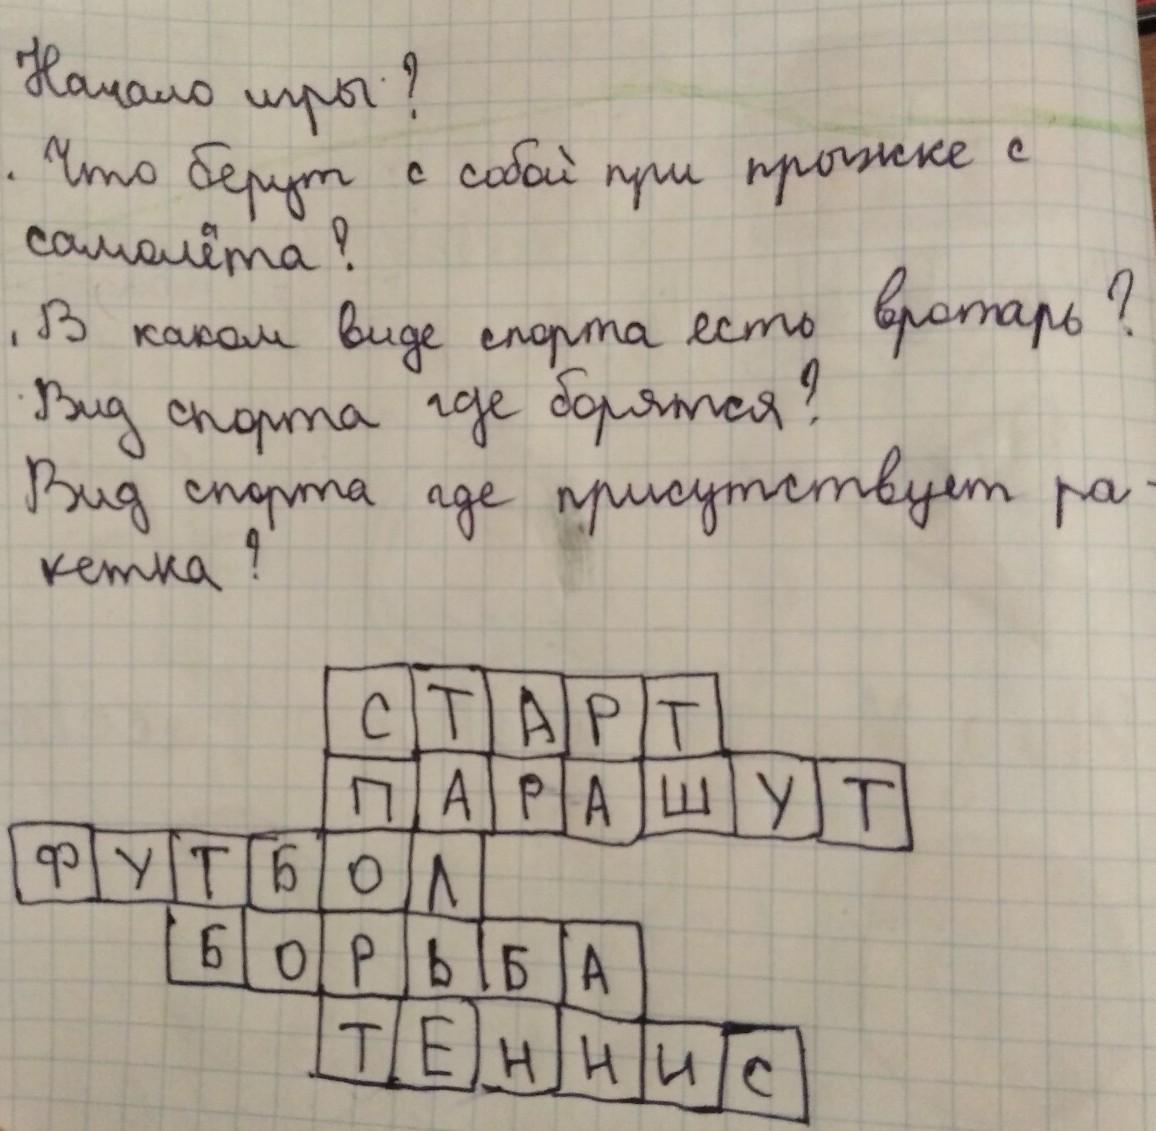 Начало игры?
. Что берут с собой при прыжке с
самолёта?
. В каком виде спорта есть вратарь?
. Вид спорта где борятся?
Вид спорта где присутствует ра-
кетка?
СТАРТ
ПАРАШУТ
ФУТБОЛ
БОРЬБА
ТЕННИС